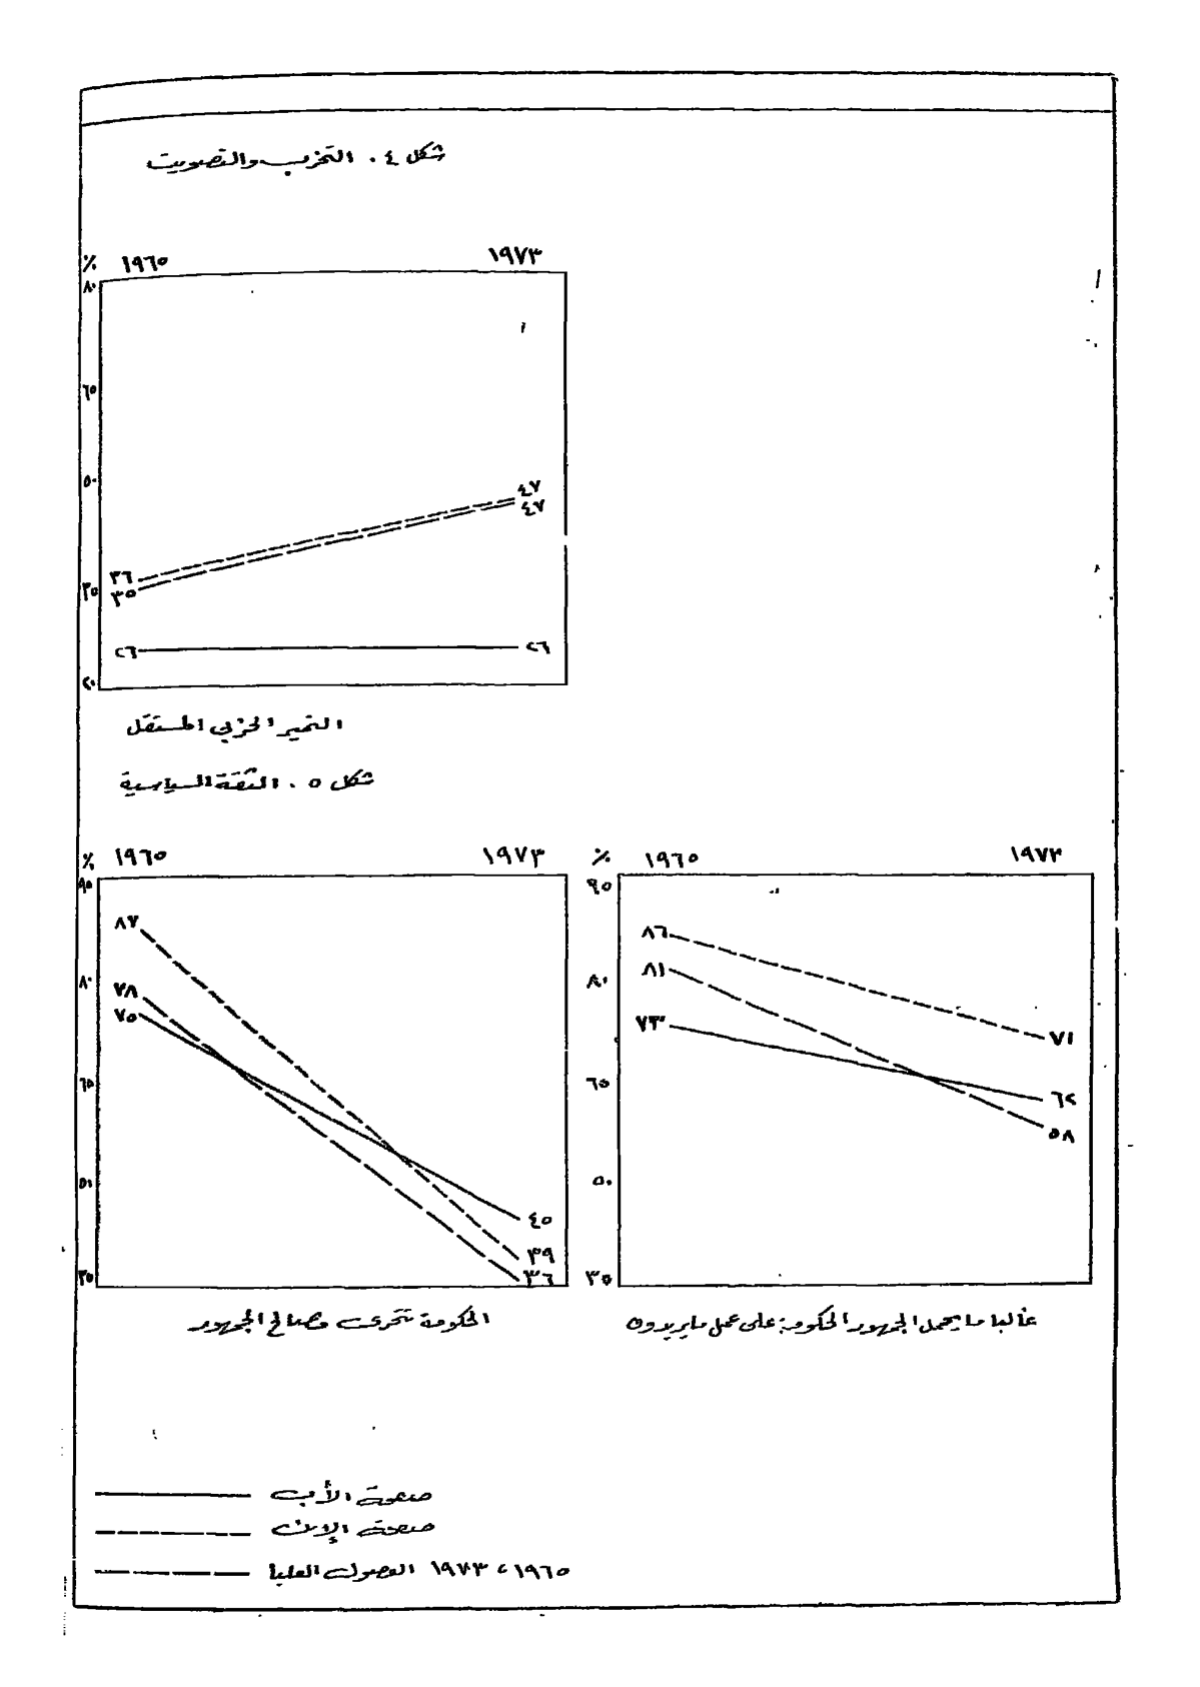 شكل ٤. التحزب والتصويت
% ١٩٦٥ ١٩٧٣
٨٠
٦٥
٥٠
٣٥
٢٠
٤٧
٤٧
٣٦
٣٥
٢٦ ٢٦
التميز الحزبي المستقل
شكل ٥. الثقة السياسية
% ١٩٦٥ ١٩٧٣
٩٥
٨٠
٦٥
٥١
٣٥
٨٧
٧٨
٧٥
٤٥
٣٩
٣٦
الحكومة تتحرى مصالح الجمهور
% ١٩٦٥ ١٩٧٣
٩٥
٨٠
٦٥
٥٠
٣٥
٨٦
٨١
٧٣
٧١
٦٢
٥٨
غالبا ما يحمل الجمهور الحكومة على عمل ما يريدون
الأب
الإبن
١٩٦٥، ١٩٧٣ الفصول العليا